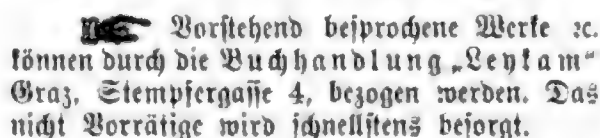 Vorſtehend beſprochene Werke ꝛc.
können durch die Buchhandlung „Leykam“
Graz, Stempfergaſſe 4, bezogen werden. Das
nicht Vorrätige wird ſchnellſtens beſorgt.